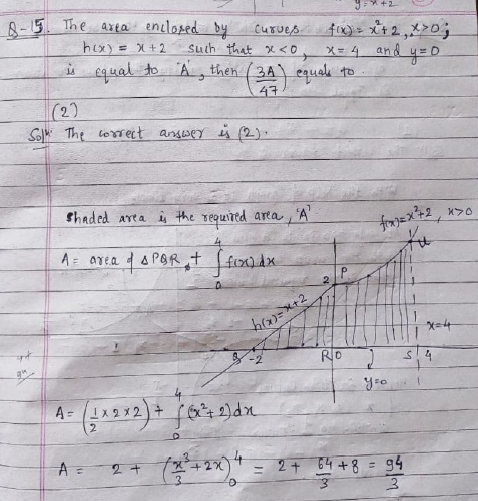 y = x+2
Q-15. The area enclosed by curves f(x) = x²+2, x>0;
h(x) = x+2 such that x<0, x=4 and y=0
is equal to 'A', then (3A/47) equals to.
(2)
Solⁿ: The correct answer is (2).
shaded area is the required area, 'A'
f(x)=x²+2, x>0
A = area of △PQR + ∫₀⁴ f(x) dx
U
2 P
h(x)=x+2
x=4
Q -2 R O S 4
y=0
A = (1/2 × 2 × 2) + ∫₀⁴ (x²+2) dx
A = 2 + (x³/3 + 2x)₀⁴ = 2 + 64/3 + 8 = 94/3